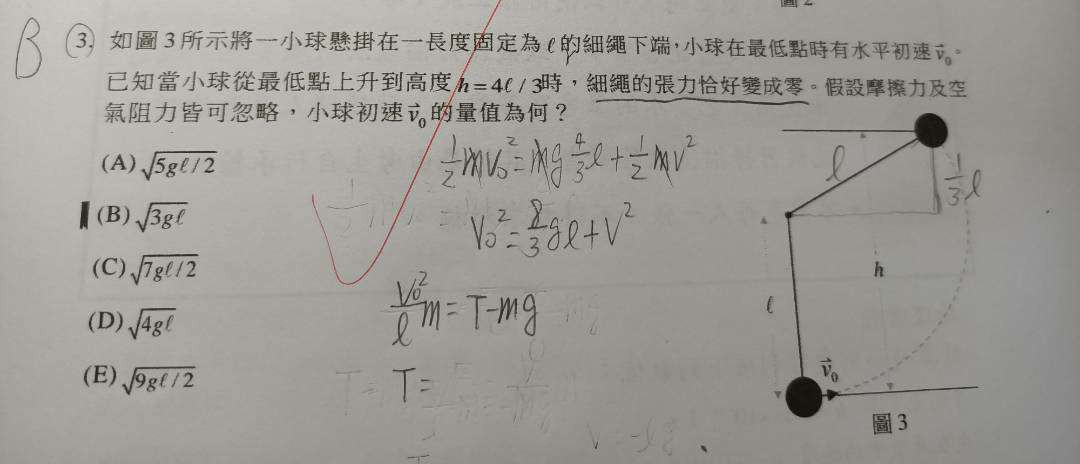 圖2
B ③. 如圖3所示將一小球懸掛在一長度固定為ℓ的細繩下端，小球在最低點時有水平初速v⃗₀。
已知當小球從最低點上升到高度h=4ℓ/3時，細繩的張力恰好變成零。假設摩擦力及空
氣阻力皆可忽略，小球初速v⃗₀的量值為何？
(A) √5gℓ/2
(B) √3gℓ
(C) √7gℓ/2
(D) √4gℓ
(E) √9gℓ/2
½mv₀²=mg 4/3 ℓ+½mv²
v₀²=8/3 gℓ+v²
v₀²/ℓ m=T-mg
T=
ℓ
1/3 ℓ
h
ℓ
v⃗₀
圖3